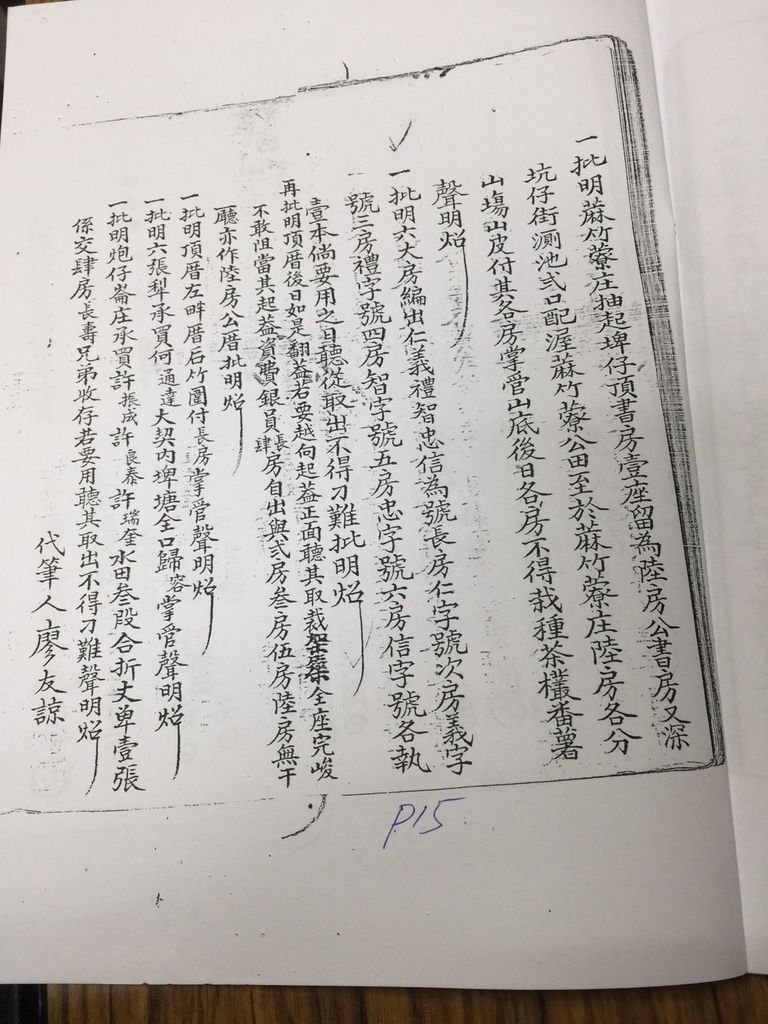 一批明蔴竹藔庄抽起埤仔頂書房壹座留為陸房公書房又深
坑仔街溷池弍口配渥蔴竹藔公田至於蔴竹藔庄陸房各分
山塲山皮付其各房掌管山底後日各房不得栽種茶欉番薯
聲明炤
一批明六大房編出仁義禮智忠信為號長房仁字號次房義字
號三房禮字號四房智字號五房忠字號六房信字號各執
壹本倘要用之日聽從取出不得刁難批明炤
再批明頂厝後日如是翻蓋若要越向起蓋正面聽其取裁架築全座完峻
不敢阻當其起蓋資費銀員長肆房自出與弍房叁房伍房陸房無干
廳亦作陸房公厝批明炤
一批明頂厝左畔厝后竹圍付長房掌管聲明炤
一批明六張犁承買何通達大契內埤塘全口歸容掌管聲明炤
一批明炮仔崙庄承買許振成許良泰許瑞奎水田叁段合折丈单壹張
係交肆房長壽兄弟收存若要用聽其取出不得刁難聲明炤
代筆人廖友諒
P15